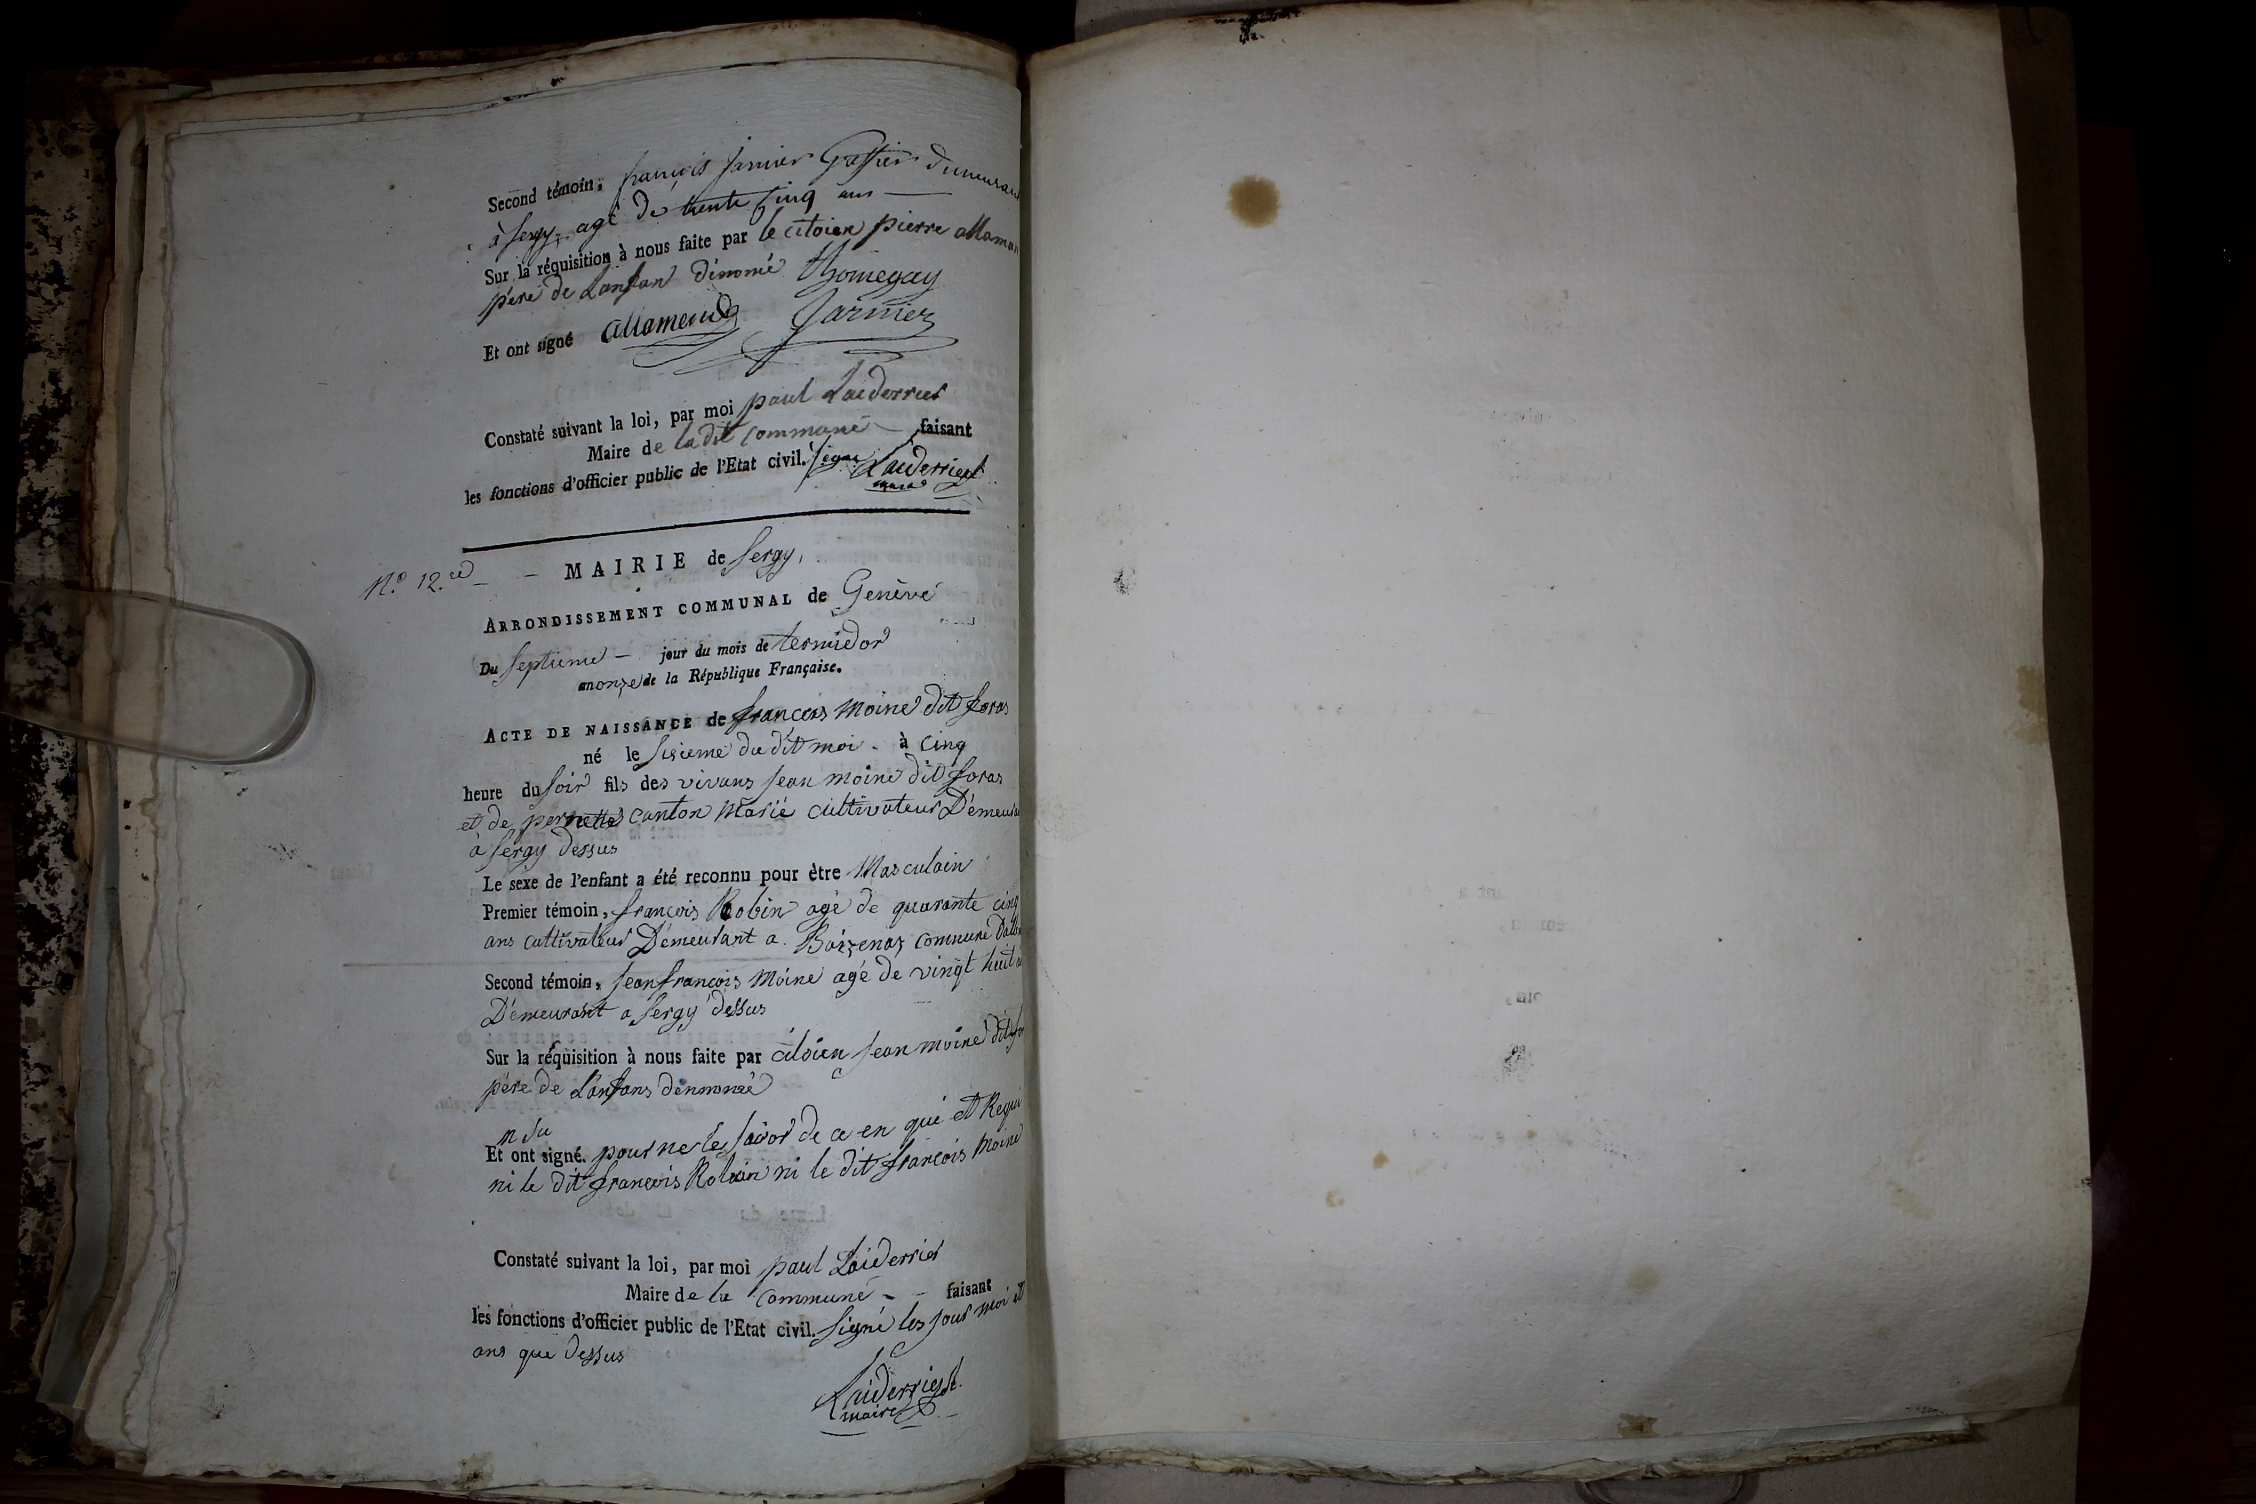 Second témoin, françois Jarnier Gassier dumeurant
à sergy, agé de trente cinq ans —
Sur la réquisition à nous faite par le citoien pierre allaman
père de Lanfan dénomé thomegay
Et ont signé allamend Jarnier
Constaté suivant la loi, par moi paul Laiderrier
Maire de la dit commune — faisant
les fonctions d'officier public de l'Etat civil. signé Laiderrier
maire
N.º 12. — MAIRIE de sergy,
ARRONDISSEMENT COMMUNAL de Genève
Du septieme — jour du mois de termidor
an onze de la République Française.
ACTE DE NAISSANCE de francois moine dit foras
né le sisieme du dit moi - à cinq
heure du soir fils des vivans jean moine dit foras
et de pernette canton marié cultivateur Démeurant
a sergy dessus
Le sexe de l'enfant a été reconnu pour être Masculain
Premier témoin, francois Robin agé de quarante cinq
ans cultivateur Démeurant a commune
Second témoin, jean francois moine agé de vingt huit
Démeurant a sergy dessus
Sur la réquisition à nous faite par citoien jean moine dit
père de Lanfans dénommé
n su
Et ont signé. pour ne les savoir de ce en qué et Requi
ni le dit francois Robin ni le dit francois moine
Constaté suivant la loi, par moi paul Laiderrier
Maire de la commune - - faisant
les fonctions d'officier public de l'Etat civil. signé les jour moi et
ans que dessus
Laiderrier
maire